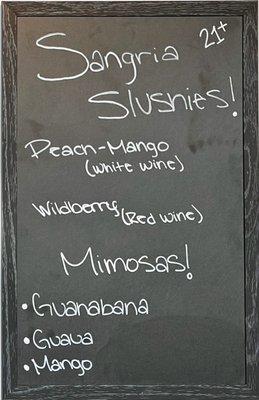 21+
Sangria
Slushies!
Peach-Mango
(white wine)
Wildberry (Red wine)
Mimosas!
• Guanabana
• Guava
• Mango